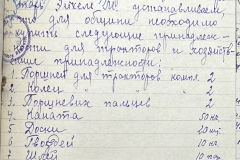 тарь Эйхем [?] устанавливаем,
что для общины необходимо
купить следующие принадлеж-
ности для тракторов и хозяйст-
ные принадлежности:
1. Поршней для тракторов компл. 2
2. Колец " " " 2
3. Поршневых пальцев 2
4. Каната 50 кг.
5. Доски 20 шт
6. Гвоздей 10 кг
7. Шлей 10